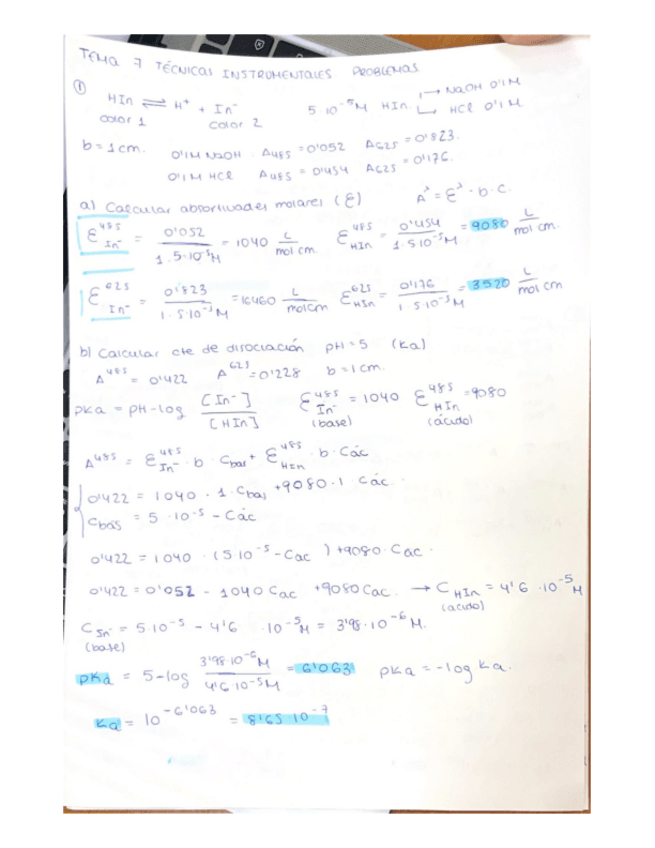 TEMA 7 TÉCNICAS INSTRUMENTALES PROBLEMAS
① HIn ⇌ H⁺ + In⁻ 5·10⁻⁵M HIn → NaOH 0'1M
color 1 color 2 ↳ HCl 0'1M
b = 1cm. 0'1M NaOH . A485 = 0'052 A625 = 0'823.
0'1M HCl A485 = 0'454 A625 = 0'176.
a) Calcular absortividades molares (ε) A^λ = ε^λ · b · c.
ε^485 In⁻ = 0'052 / 1·5·10⁻⁵M = 1040 L/mol cm. ε^485 HIn = 0'454 / 1·5·10⁻⁵M = 9080 L/mol cm.
ε^625 In⁻ = 0'823 / 1·5·10⁻⁵M = 16460 L/molcm ε^625 HIn = 0'176 / 1·5·10⁻⁵M = 3520 L/mol cm
b) Calcular cte de disociación pH = 5 (Ka)
A^485 = 0'422 A^625 = 0'228 b = 1cm.
pKa = pH - log [In⁻]/[HIn] ε^485 In⁻ = 1040 ε^485 HIn = 9080
(base) (ácido)
A^485 = ε^485 In⁻ · b · Cbas + ε^485 HIn · b · Các
0'422 = 1040 · 1 · Cbas + 9080 · 1 · Các.
Cbas = 5·10⁻⁵ - Các
0'422 = 1040 · (5·10⁻⁵ - Cac) + 9080 · Cac.
0'422 = 0'052 - 1040 Cac + 9080 Cac. → C HIn = 4'6·10⁻⁵M
(acido)
C In⁻ = 5·10⁻⁵ - 4'6·10⁻⁵M = 3'98·10⁻⁶M.
(base)
pKa = 5 - log 3'98·10⁻⁶M / 4'6·10⁻⁵M = 6'063 pKa = -log Ka.
Ka = 10^-6'063 = 8'65·10⁻⁷